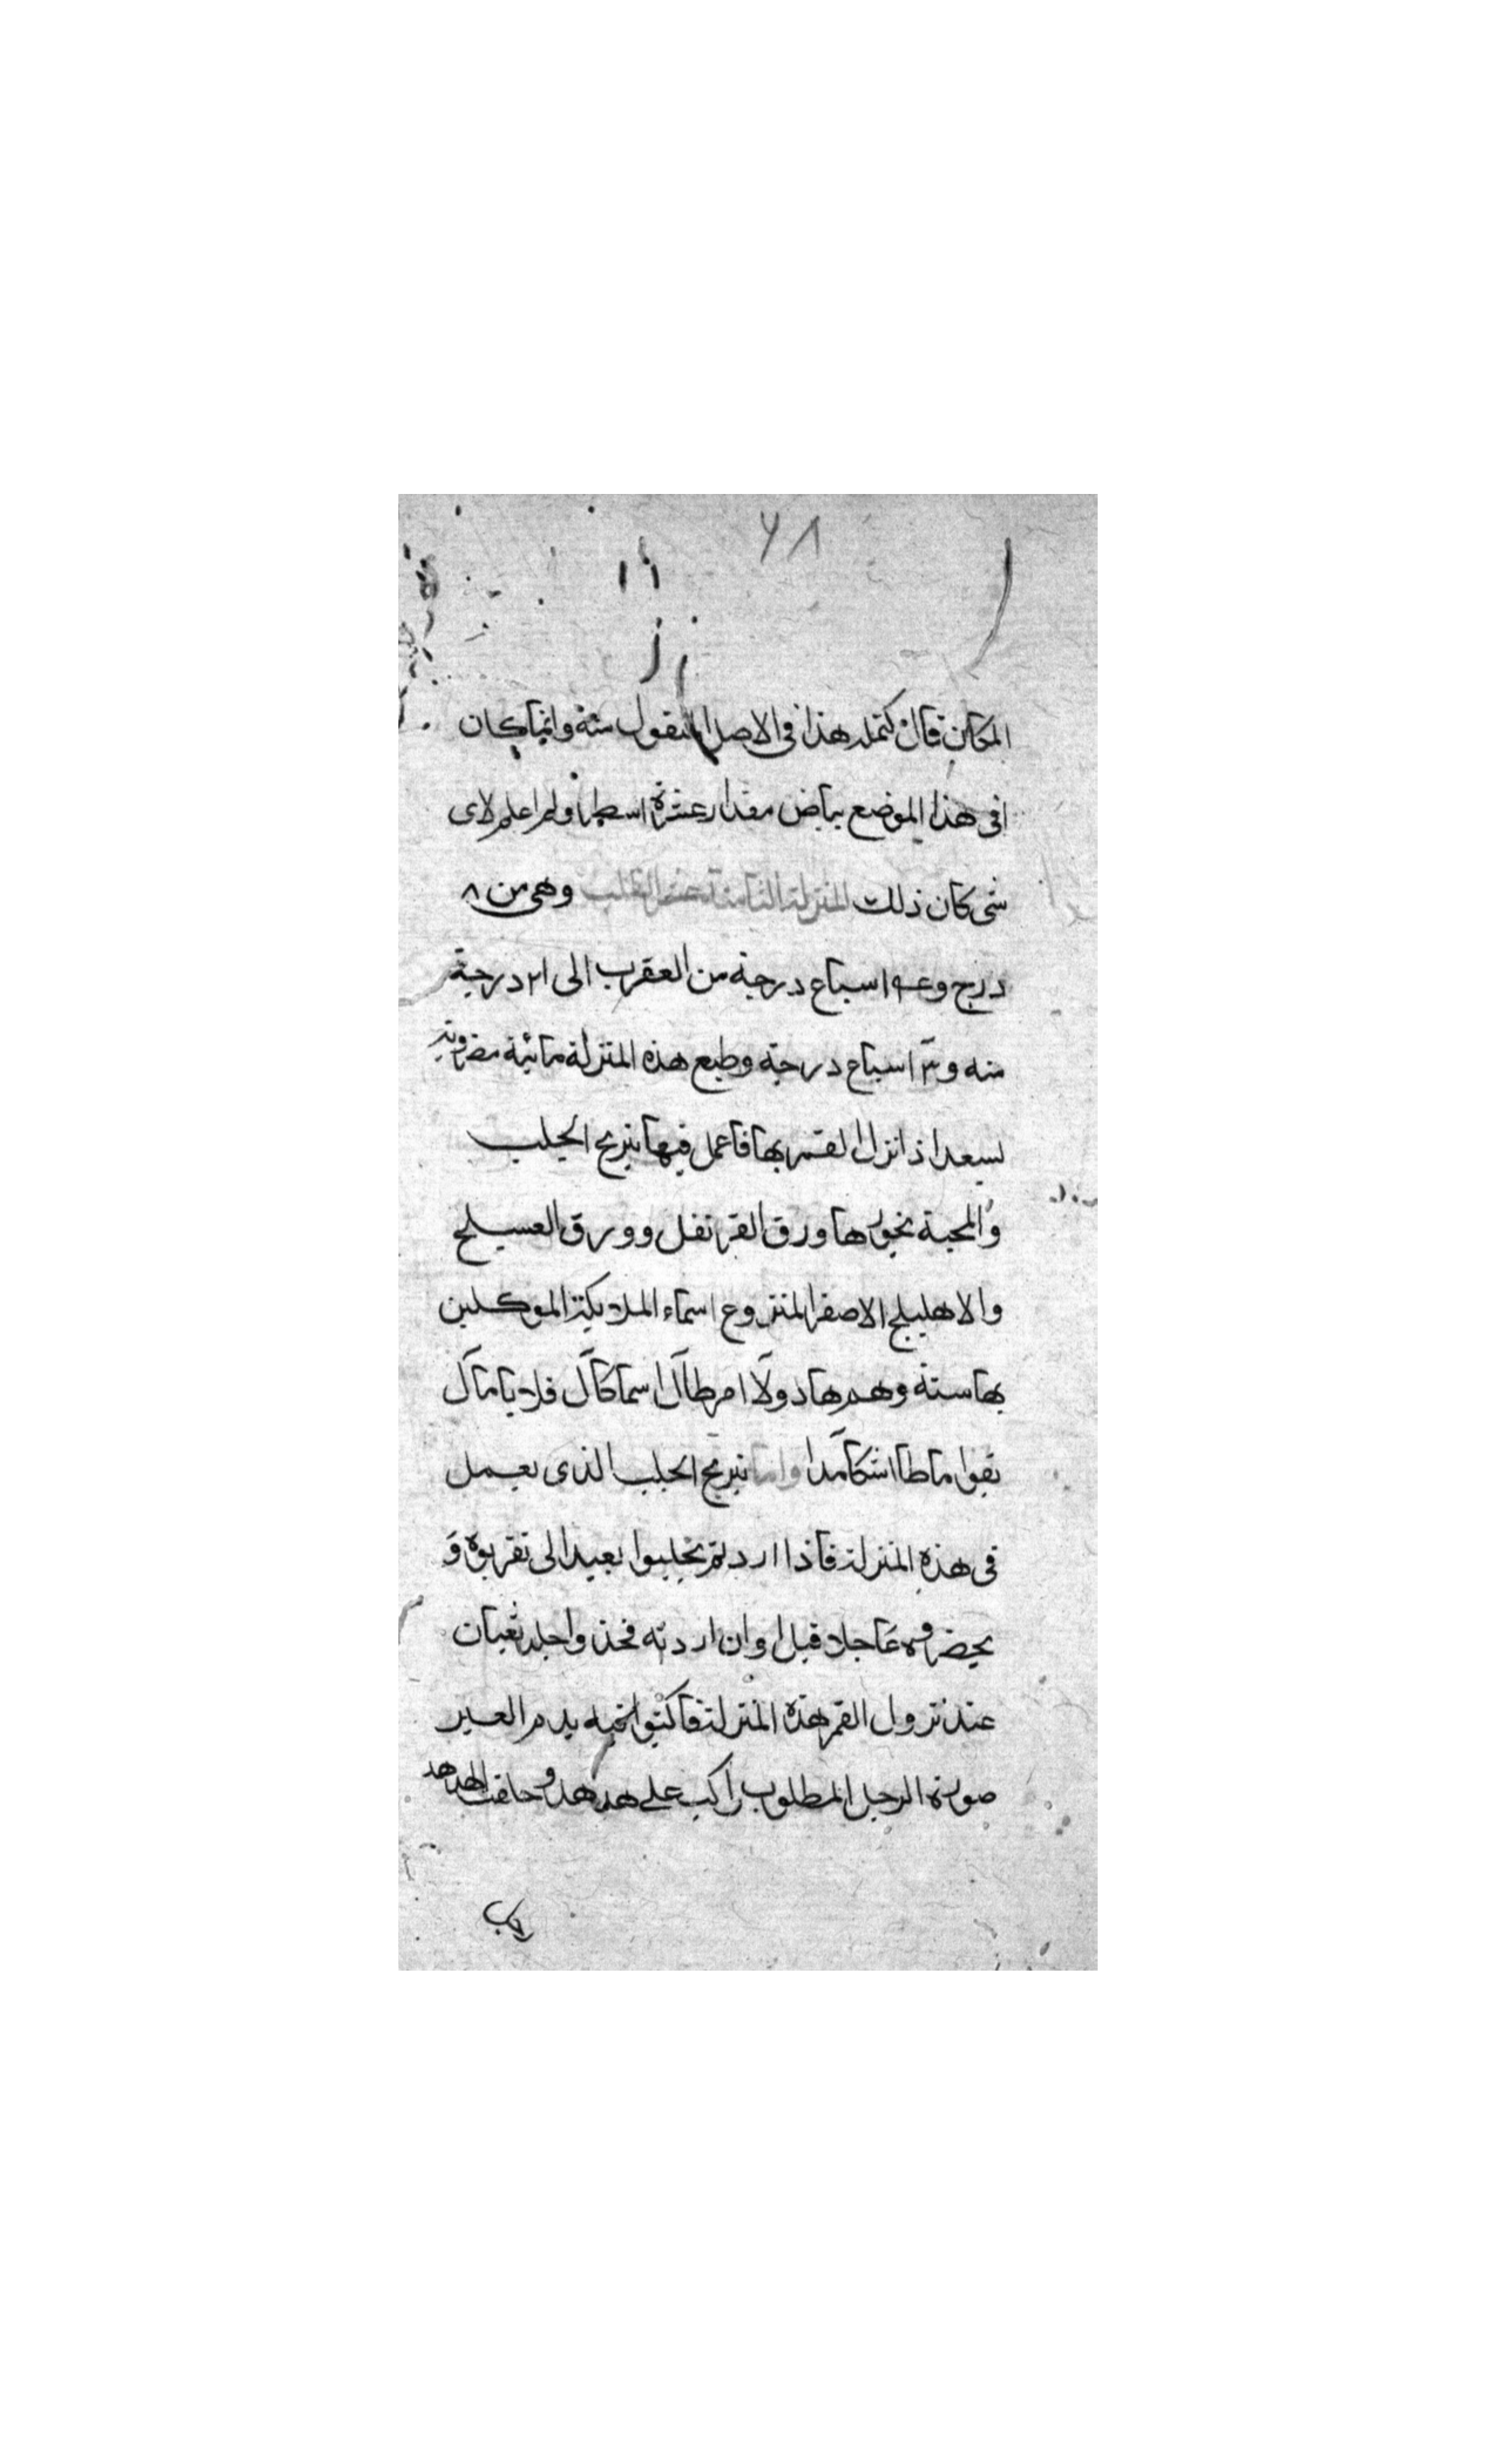 ٦٨
المكاين قال كتملد هذا فى الاصل المنقول منه وانما كان
فى هذا الموضع بياض مقدار عشرة اسطر ولم اعلم لاى
شى كان ذلك المنزلة الثامنة عشر القلب وهى من ٨
درج وعـه اسباع درجة من العقرب الى ٢١ درجة
منه و٣ اسباع درجة وطبع هذه المنزلة مائية
لسعد اذا نزل القمر بها فاعمل فيها نيرنج الجلب
والمحبة بخورها ورق القرنفل وورق العسيلج
والاهليلج الاصفر المنزوع اسماء الملايكة الموكلين
بها ستة وهم هادولا امرطاآل اسماكاآل فلاياماآل
بقوا ماطاا شكآمدا واما نيرنج الجلب الذى يعمل
فى هذه المنزلة فاذا اردتم تجلبوا بعيدا الى تقربوه و
يحضروه عاجلا قبل اوان اردته فخذوا جلد ثعبان
عند نزول القمر هذه المنزلة فاكتبوا فيه بدم العير
صورة الرجل المطلوب راكب على هدهد وحلفت الهدهد